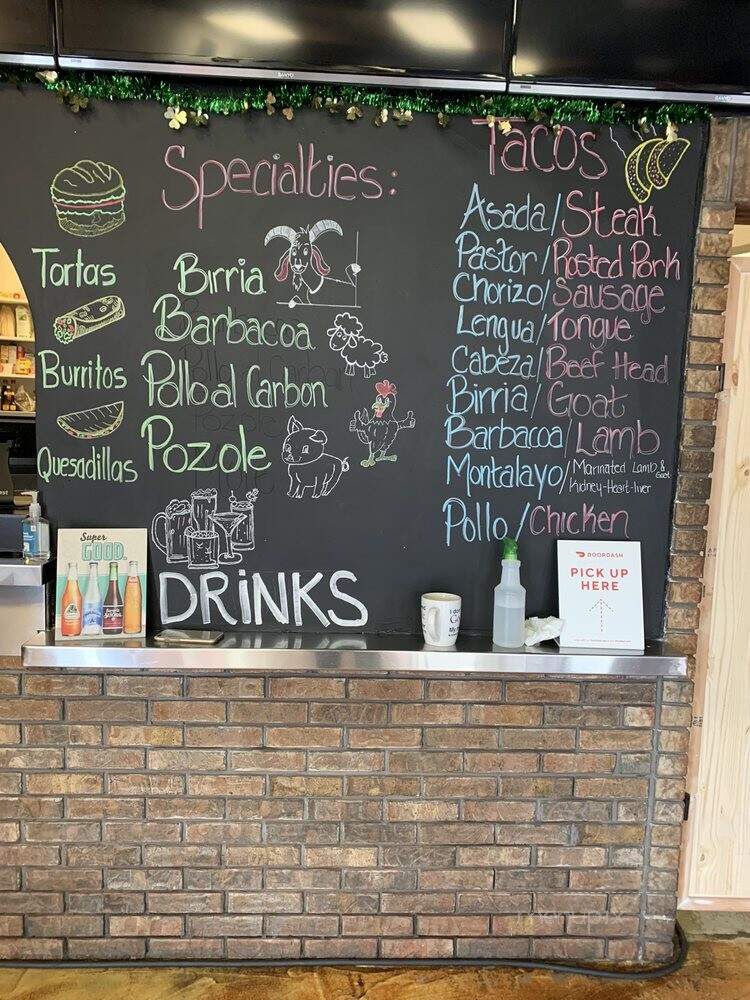 Specialties:
Birria
Barbacoa
Pollo al Carbon
Pozole
Tortas
Burritos
Quesadillas
DRiNKS
Tacos
Asada/Steak
Pastor/Rosted Pork
Chorizo/Sausage
Lengua/Tongue
Cabeza/Beef Head
Birria/Goat
Barbacoa/Lamb
Montalayo/Marinated Lamb & Goat
Kidney-Heart-liver
Pollo/Chicken
Super
GOOD.
DOORDASH
PICK UP
HERE